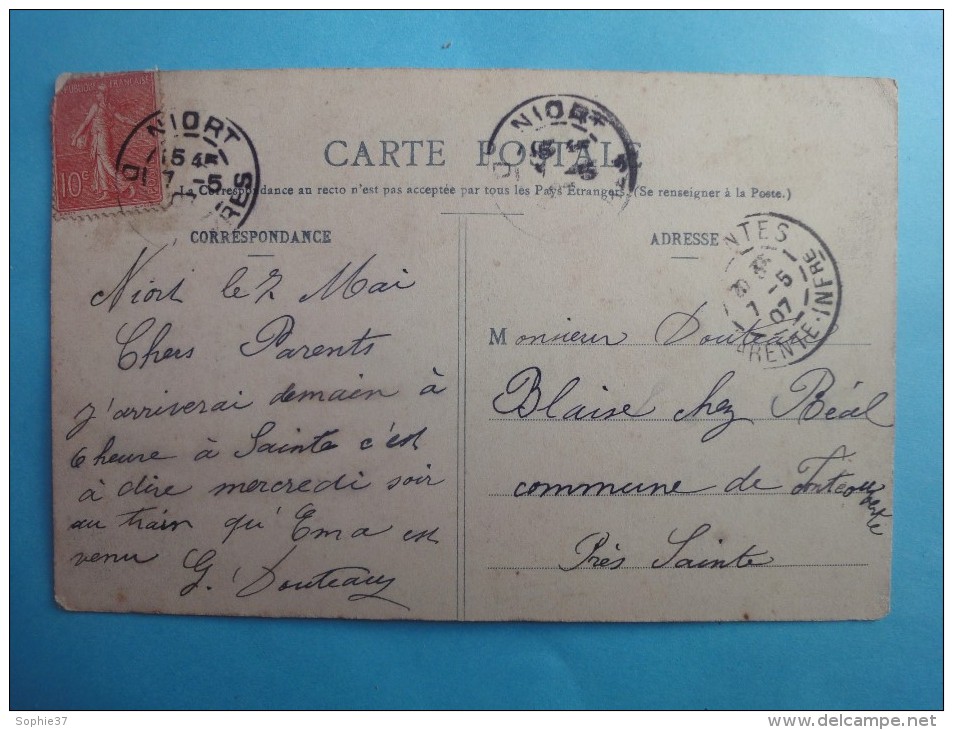 RÉPUBLIQUE FRANÇAISE
10c
NIORT
15 45
7 -5
NIORT
CARTE POSTALE
La Correspondance au recto n'est pas acceptée par tous les Pays Étrangers. (Se renseigner à la Poste.)
CORRESPONDANCE
Niort le 7 Mai
Chers Parents
J'arriverai demain à
6 heure à Sainte c'est
à dire mercredi soir
au train qu'Ema est
venu
G. Douteau
ADRESSE
NTES
7 -5
07
ARENTE-INFRE
Monsieur Douteau
Blaise chez Béal
commune de
Près Sainte
Sophie37
www.delcampe.net